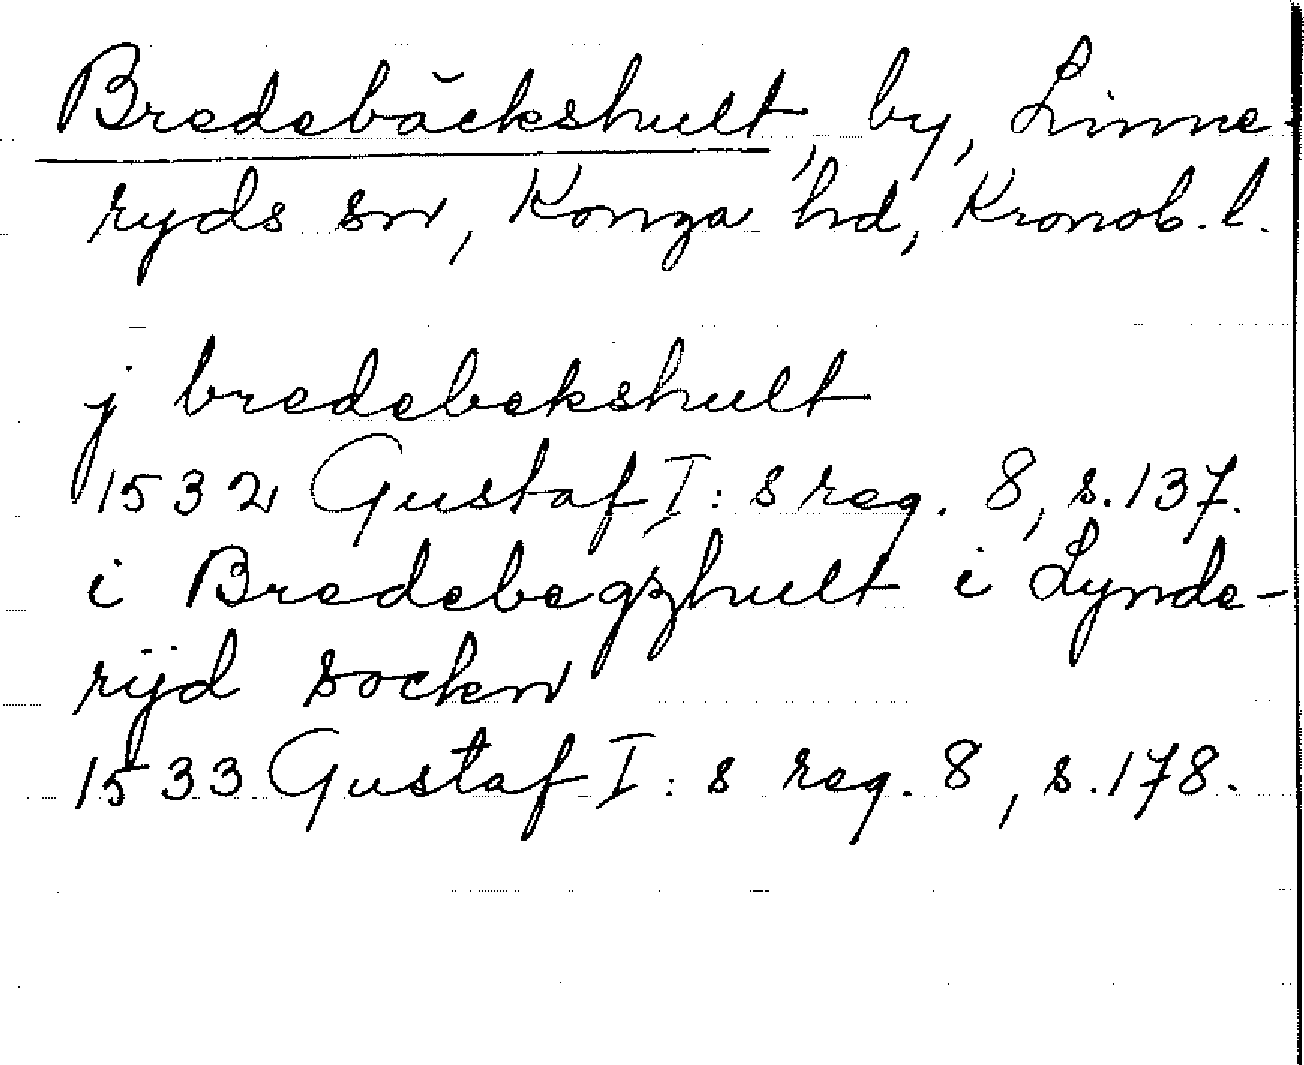 Bredebäckshult, by, Linne-
ryds sn, Konga hd, Kronob. l.
j bredebekshult
1532 Gustaf I:s reg. 8, s. 137.
i Bredebegzhult i Lynde-
rÿd sockn
1533 Gustaf I:s reg. 8, s. 178.